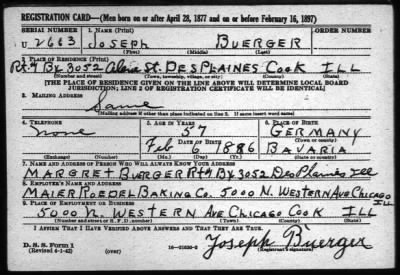 REGISTRATION CARD—(Men born on or after April 28, 1877 and on or before February 16, 1897)
SERIAL NUMBER 1. NAME (Print) ORDER NUMBER
U 2663 JOSEPH BUERGER
(First) (Middle) (Last)
2. PLACE OF RESIDENCE (Print)
Rt#4 Bx 3052 St. DES PLAINES COOK ILL
(Number and street) (Town, township, village, or city) (County) (State)
[THE PLACE OF RESIDENCE GIVEN ON THE LINE ABOVE WILL DETERMINE LOCAL BOARD
JURISDICTION; LINE 2 OF REGISTRATION CERTIFICATE WILL BE IDENTICAL]
3. MAILING ADDRESS
Same
[Mailing address if other than place indicated on line 2. If same insert word same]
4. TELEPHONE 5. AGE IN YEARS 6. PLACE OF BIRTH
None 57 GERMANY
DATE OF BIRTH (Town or county)
Feb 6 1886 BAVARIA
(Exchange) (Number) (Mo.) (Day) (Yr.) (State or country)
7. NAME AND ADDRESS OF PERSON WHO WILL ALWAYS KNOW YOUR ADDRESS
MARGRET BUERGER Rt#4 Bx 3052 Des Plaines Ill
8. EMPLOYER'S NAME AND ADDRESS
MAIER ROEDEL BAKING CO. 5000 N. WESTERN AVE CHICAGO ILL
9. PLACE OF EMPLOYMENT OR BUSINESS
5000 N. WESTERN AVE CHICAGO COOK ILL
(Number and street or R. F. D. number) (Town) (County) (State)
I AFFIRM THAT I HAVE VERIFIED ABOVE ANSWERS AND THAT THEY ARE TRUE.
D. S. S. Form 1
(Revised 4-1-42) (over) Joseph Buerger
(Registrant's signature)